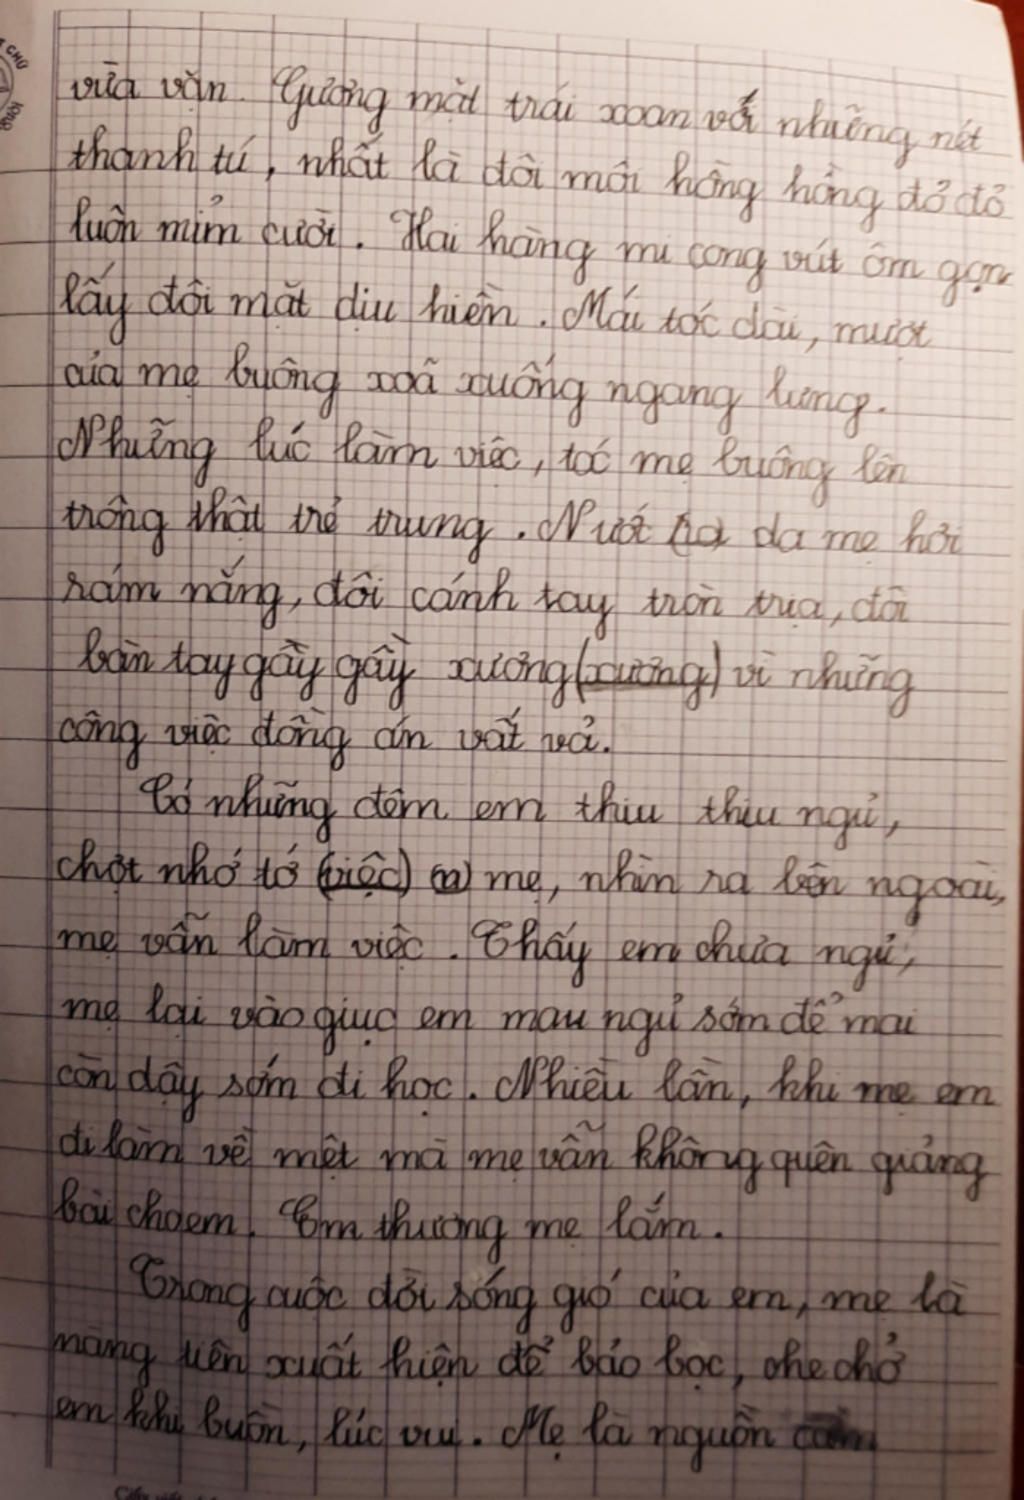 vừa vặn. Gương mặt trái xoan với những nét
thanh tú, nhất là đôi môi hồng hồng đỏ đỏ
luôn mỉm cười. Hai hàng mi cong vút ôm gọn
lấy đôi mắt dịu hiền. Mái tóc dài, mượt
của mẹ buông xoã xuống ngang lưng.
Những lúc làm việc, tóc mẹ buông lên
trông thật trẻ trung. Nướt (ra) da mẹ hơi
rám nắng, đôi cánh tay tròn trịa, đôi
bàn tay gầy gầy xương (xương) vì những
công việc đồng án vất vả.
Có những đêm em thiu thiu ngủ,
chợt nhớ tớ (việc) (m) mẹ, nhìn ra bên ngoài,
mẹ vẫn làm việc. Thấy em chưa ngủ,
mẹ lại vào giục em mau ngủ sớm để mai
còn dậy sớm đi học. Nhiều lần, khi mẹ em
đi làm về mệt mà mẹ vẫn không quên giảng
bài cho em. Em thương mẹ lắm.
Trong cuộc đời sóng gió của em, mẹ là
nàng tiên xuất hiện để bảo bọc, che chở
em khi buồn, lúc vui. Mẹ là nguồn